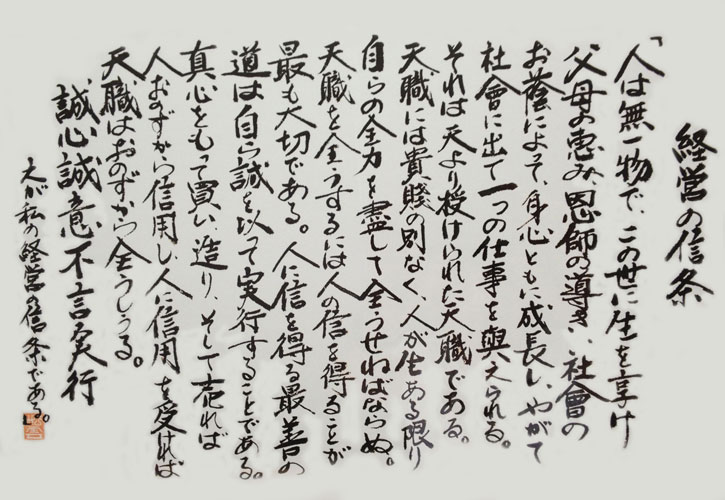 経営の信条
「人は無一物で、この世に生を享け
父母の恵み、恩師の導き、社會の
お蔭によって、身心ともに成長し、やがて
社會に出て一つの仕事を與えられる。
それは天より授けられた天職である。
天職には貴賤の別なく、人が生ある限り
自らの全力を盡して全うせねばならぬ。
天職を全うするには人の信を得ることが
最も大切である。人に信を得る最善の
道は自ら誠を以って実行することである。
真心をもって買い、造り、そして売れば
人おのずから信用し、人に信用を受ければ
天職はおのずから全うしうる。
誠心誠意不言実行
之が私の経営の信条である。」